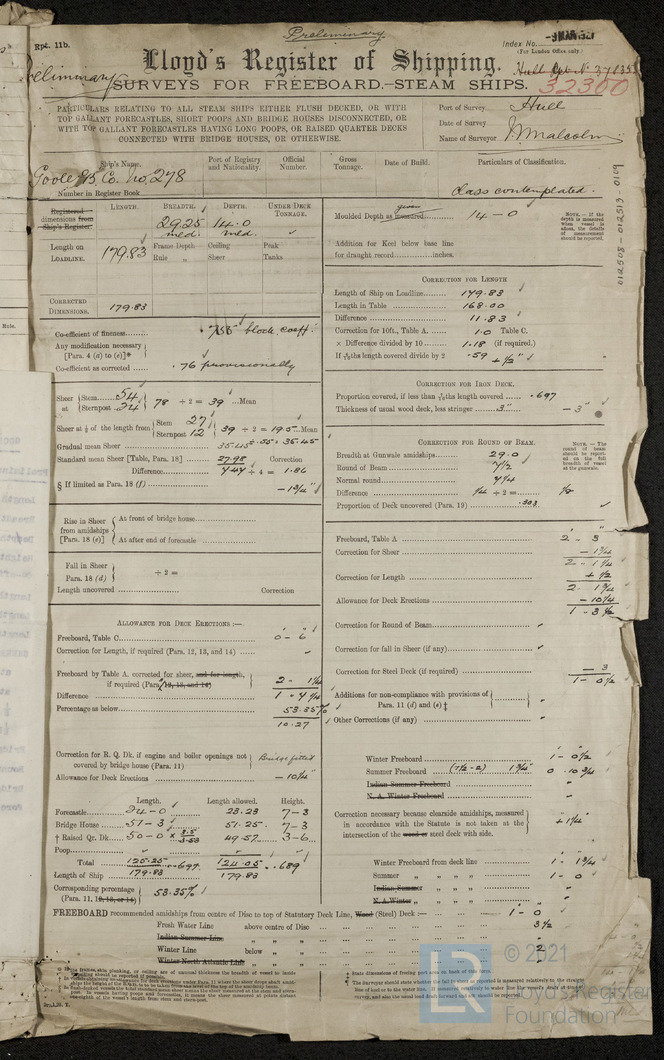 Preliminary.
Rpt. 11b.
Index No.
(For London Office only)
Lloyd's Register of Shipping.
32300
SURVEYS FOR FREEBOARD.—STEAM SHIPS.
PARTICULARS RELATING TO ALL STEAM SHIPS EITHER FLUSH DECKED, OR WITH
TOP GALLANT FORECASTLES, SHORT POOPS AND BRIDGE HOUSES DISCONNECTED, OR
WITH TOP GALLANT FORECASTLES HAVING LONG POOPS, OR RAISED QUARTER DECKS
CONNECTED WITH BRIDGE HOUSES, OR OTHERWISE.
Port of Survey Hull
Date of Survey
Name of Surveyor J. Malcolm
Ship's Name.
Port of Registry and Nationality.
Official Number.
Gross Tonnage.
Date of Build.
Particulars of Classification.
Goole SB Co. No. 278
Number in Register Book
Class contemplated.
Registered dimensions from Ship's Register
LENGTH. BREADTH. DEPTH. UNDER DECK TONNAGE.
29.25 14.0
mld. mld.
Length on LOADLINE. 179.83
Frame Depth Ceiling Peak
Rule " Sheer Tanks
CORRECTED DIMENSIONS. 179.83
Co-efficient of fineness block coeff.
Any modification necessary [Para. 4 (a) to (e)]*
Co-efficient as corrected .76 provisionally
Sheer at Stem 54 Sternpost 24 78 ÷ 2 = 39 Mean
Sheer at 1/8 of the length from Stem 27 Sternpost 12 39 ÷ 2 = 19.5 Mean
Gradual mean Sheer 35.45
Standard mean Sheer [Table, Para. 18] 27.98 Correction
Difference 7.47 ÷ 4 = 1.86
§ If limited as Para. 18 (f) — 1 3/4"
Rise in Sheer from amidships [Para. 18 (e)]
At front of bridge house
At after end of forecastle
Fall in Sheer Para. 18 (d) ÷ 2 =
Length uncovered Correction
ALLOWANCE FOR DECK ERECTIONS :—
Freeboard, Table C 0 - 6
Correction for Length, if required (Para. 12, 13, and 14)
Freeboard by Table A. corrected for sheer, and for length, if required (Para. 12, 13, and 14) 2 - 1 1/4
Difference 1 - 7 1/4
Percentage as below 53.35%
10.27
Correction for R. Q. Dk. if engine and boiler openings not covered by bridge house (Para. 11) Bridge fitted
Allowance for Deck Erections — 10 1/4
Length. Length allowed. Height.
Forecastle 24 - 0 23.23 7 - 3
Bridge House 51 - 3 51.25 7 - 3
† Raised Qr. Dk. 50 - 0 49.57 3 - 6
Poop
Total 125.25 = .697 124.05 = .689
Length of Ship 179.83 179.83
Corresponding percentage (Para. 11, 12, 13, or 14) 53.35%
Moulded Depth as measured given 14 - 0
NOTE.—If the depth is measured when vessel is afloat, the details of measurement should be reported.
Addition for Keel below base line
for draught record inches.
CORRECTION FOR LENGTH
Length of Ship on Loadline 179.83
Length in Table 168.00
Difference 11.83
Correction for 10ft., Table A. 1.0 Table C.
× Difference divided by 10 1.18 (if required.)
If 6/10ths length covered divide by 2 .59 + 1/2"
CORRECTION FOR IRON DECK.
Proportion covered, if less than 7/10ths length covered .697
Thickness of usual wood deck, less stringer 3" — 3"
CORRECTION FOR ROUND OF BEAM.
NOTE.—The round of beam should be reported on the full breadth of vessel at the gunwale.
Breadth at Gunwale amidships 29.0
Round of Beam 7 1/2
Normal round 7 1/4
Difference 1/4 ÷ 2 = 1/8
Proportion of Deck uncovered (Para. 19) .303
Freeboard, Table A 2 - 3
Correction for Sheer — 1 3/4
2 - 1 1/4
Correction for Length + 1/2
2 - 1 3/4
Allowance for Deck Erections — 10 1/4
1 - 3 1/2
Correction for Round of Beam
Correction for fall in Sheer (if any)
Correction for Steel Deck (if required) — 3
1 - 0 1/2
Additions for non-compliance with provisions of Para. 11 (d) and (e) ‡
Other Corrections (if any)
Winter Freeboard 1 - 0 1/2
Summer Freeboard 1 3/4 0 - 10 3/4
Indian Summer Freeboard
N. A. Winter Freeboard
Correction necessary because clearside amidships, measured in accordance with the Statute is not taken at the intersection of the wood or steel deck with side. + 1 1/4
Winter Freeboard from deck line 1 - 1 3/4
Summer " " " 1 - 0
Indian Summer " " "
N. A. Winter " " "
FREEBOARD recommended amidships from centre of Disc to top of Statutory Deck Line, Wood (Steel) Deck :— 1 - 0
Fresh Water Line above centre of Disc 3 1/2
Indian Summer Line " "
Winter Line below " 2
Winter North Atlantic Line " "
012508 - 012513 - 0109
© 2021
LR
Lloyd's Register
Foundation